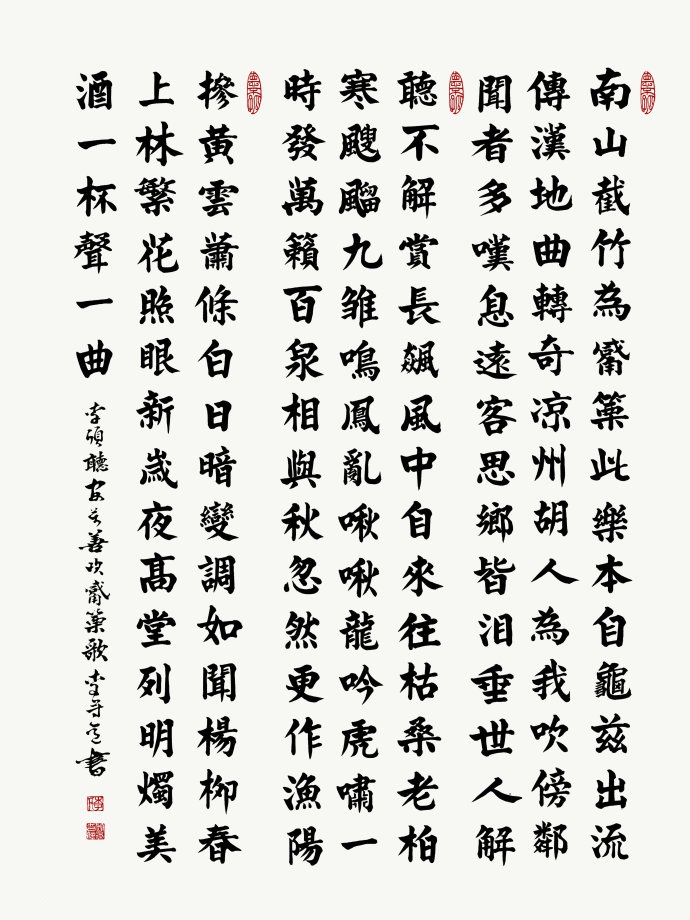 南山截竹為觱篥此樂本自龜兹出流
傳漢地曲轉奇凉州胡人為我吹傍鄰
聞者多嘆息遠客思鄉皆泪垂世人解
聽不解賞長飆風中自來往枯桑老柏
寒颼飀九雛鳴鳳亂啾啾龍吟虎嘯一
時發萬籟百泉相與秋忽然更作漁陽
摻黃雲蕭條白日暗變調如聞楊柳春
上林繁花照眼新歲夜髙堂列明燭美
酒一杯聲一曲
李頎聽安万善吹觱篥歌 李守書